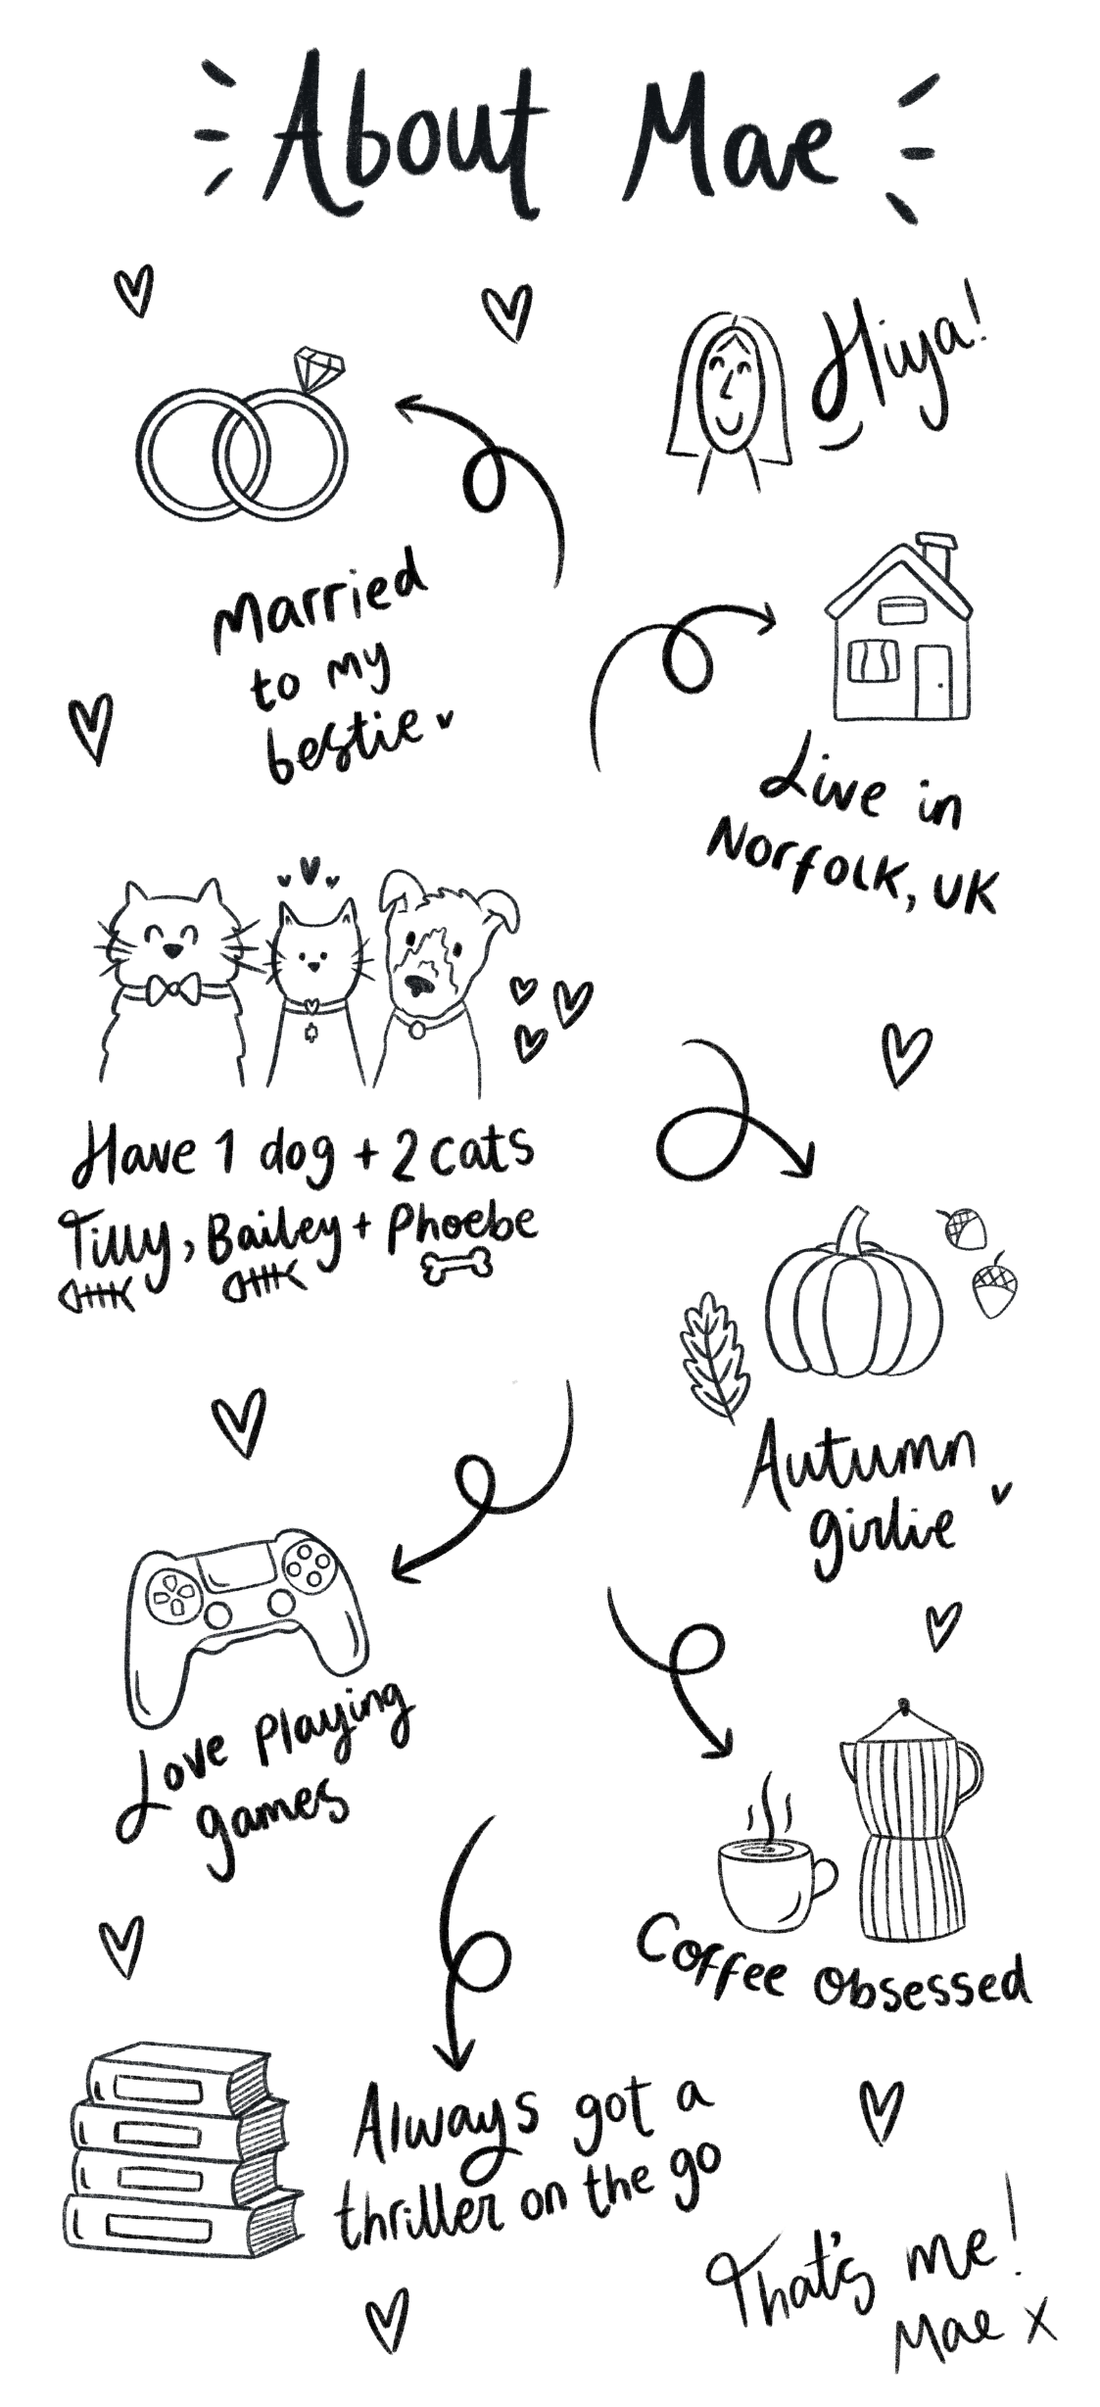 About Mae
Hiya!
Married
to my
bestie
Live in
Norfolk, UK
Have 1 dog + 2 cats
Tilly, Bailey + Phoebe
Autumn
girlie
Love Playing
games
Coffee Obsessed
Always got a
thriller on the go
That's me!
Mae X